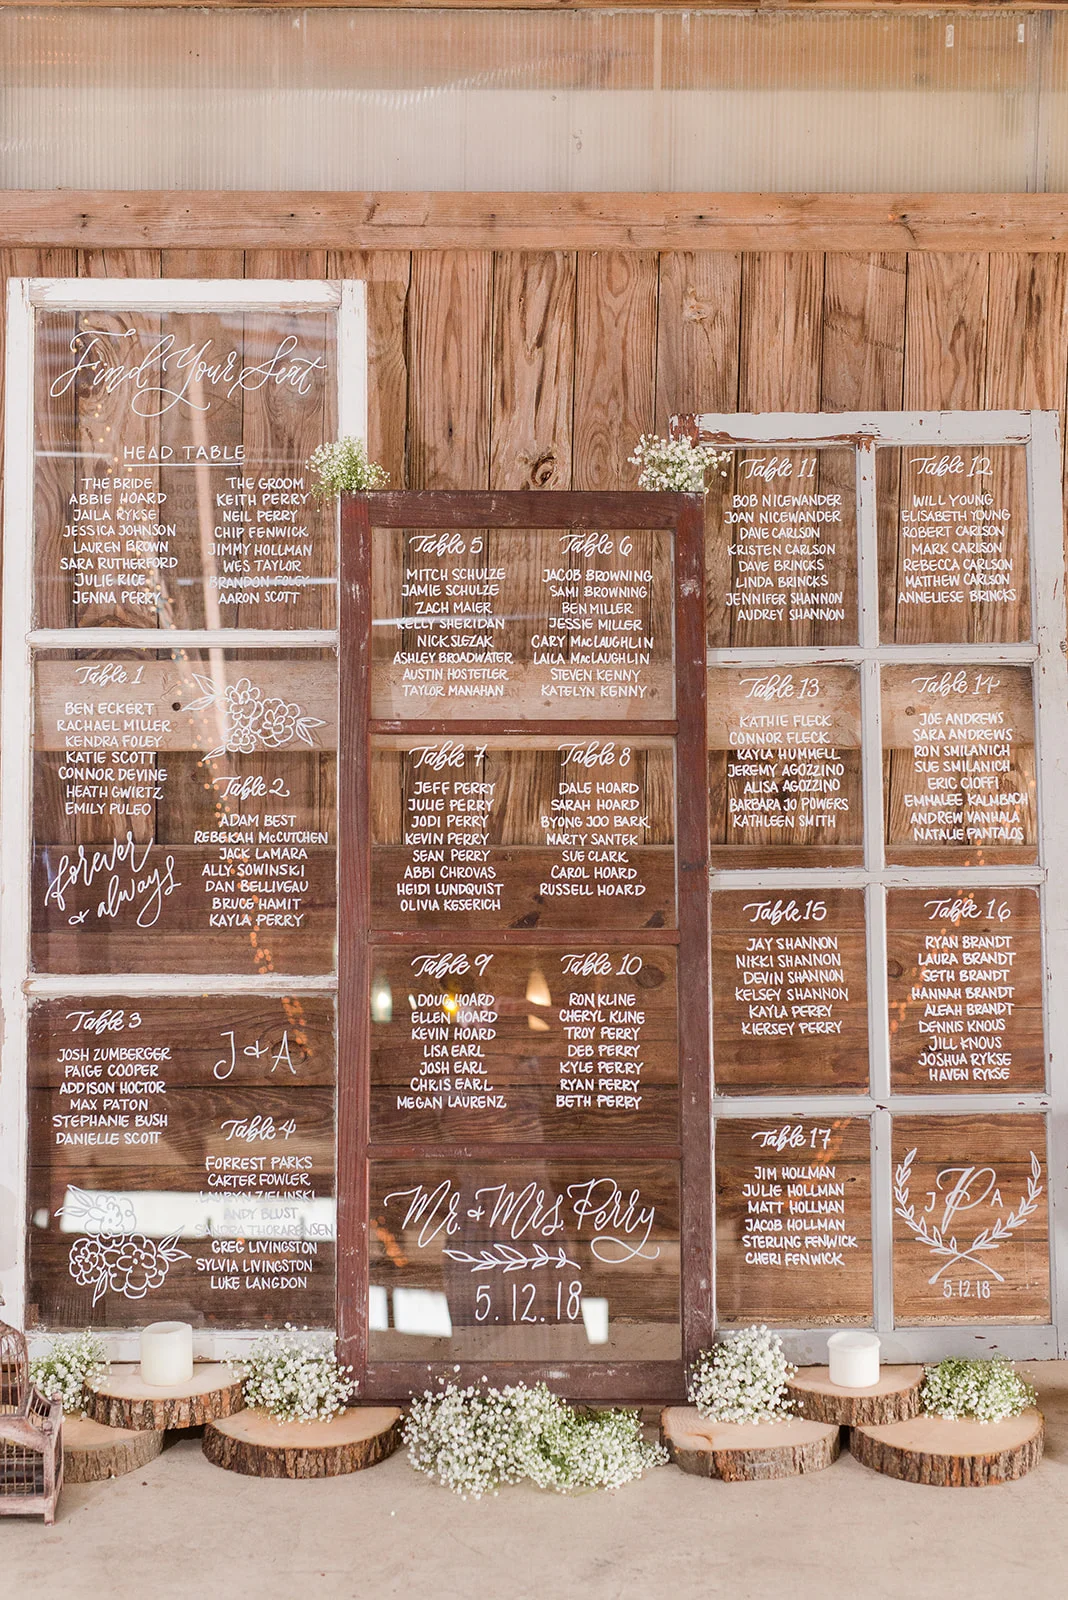 Find Your Seat
HEAD TABLE
THE BRIDE
ABBIE HOARD
JAILA RYKSE
JESSICA JOHNSON
LAUREN BROWN
SARA RUTHERFORD
JULIE RICE
JENNA PERRY
THE GROOM
KEITH PERRY
NEIL PERRY
CHIP FENWICK
JIMMY HOLLMAN
WES TAYLOR
BRANDON FOLEY
AARON SCOTT
Table 1
BEN ECKERT
RACHAEL MILLER
KENDRA FOLEY
KATIE SCOTT
CONNOR DEVINE
HEATH GWIRTZ
EMILY PULEO
Table 2
ADAM BEST
REBEKAH McCUTCHEN
JACK LaMARA
ALLY SOWINSKI
DAN BELLIVEAU
BRUCE HAMIT
KAYLA PERRY
forever
& always
Table 3
JOSH ZUMBERGER
PAIGE COOPER
ADDISON HOCTOR
MAX PATON
STEPHANIE BUSH
DANIELLE SCOTT
J & A
Table 4
FORREST PARKS
CARTER FOWLER
LAURYN ZIELINSKI
ANDY BLUST
SANDRA THORARENSEN
GREG LIVINGSTON
SYLVIA LIVINGSTON
LUKE LANGDON
Table 5
MITCH SCHULZE
JAMIE SCHULZE
ZACH MAIER
KELLY SHERIDAN
NICK SLEZAK
ASHLEY BROADWATER
AUSTIN HOSTETLER
TAYLOR MANAHAN
Table 6
JACOB BROWNING
SAMI BROWNING
BEN MILLER
JESSIE MILLER
CARY MacLAUGHLIN
LAILA MacLAUGHLIN
STEVEN KENNY
KATELYN KENNY
Table 7
JEFF PERRY
JULIE PERRY
JODI PERRY
KEVIN PERRY
SEAN PERRY
ABBI CHROVAS
HEIDI LUNDQUIST
OLIVIA KESERICH
Table 8
DALE HOARD
SARAH HOARD
BYONG JOO BARK
MARTY SANTEK
SUE CLARK
CAROL HOARD
RUSSELL HOARD
Table 9
DOUG HOARD
ELLEN HOARD
KEVIN HOARD
LISA EARL
JOSH EARL
CHRIS EARL
MEGAN LAURENZ
Table 10
RON KLINE
CHERYL KLINE
TROY PERRY
DEB PERRY
KYLE PERRY
RYAN PERRY
BETH PERRY
Mr. & Mrs. Perry
5.12.18
Table 11
BOB NICEWANDER
JOAN NICEWANDER
DAVE CARLSON
KRISTEN CARLSON
DAVE BRINCKS
LINDA BRINCKS
JENNIFER SHANNON
AUDREY SHANNON
Table 12
WILL YOUNG
ELISABETH YOUNG
ROBERT CARLSON
MARK CARLSON
REBECCA CARLSON
MATTHEW CARLSON
ANNELIESE BRINCKS
Table 13
KATHIE FLECK
CONNOR FLECK
KAYLA HUMMELL
JEREMY AGOZZINO
ALISA AGOZZINO
BARBARA JO POWERS
KATHLEEN SMITH
Table 14
JOE ANDREWS
SARA ANDREWS
RON SMILANICH
SUE SMILANICH
ERIC CIOFFI
EMMALEE KALMBACH
ANDREW VANHALA
NATALIE PANTALOS
Table 15
JAY SHANNON
NIKKI SHANNON
DEVIN SHANNON
KELSEY SHANNON
KAYLA PERRY
KIERSEY PERRY
Table 16
RYAN BRANDT
LAURA BRANDT
SETH BRANDT
HANNAH BRANDT
ALEAH BRANDT
DENNIS KNOUS
JILL KNOUS
JOSHUA RYKSE
HAVEN RYKSE
Table 17
JIM HOLLMAN
JULIE HOLLMAN
MATT HOLLMAN
JACOB HOLLMAN
STERLING FENWICK
CHERI FENWICK
J P A
5.12.18